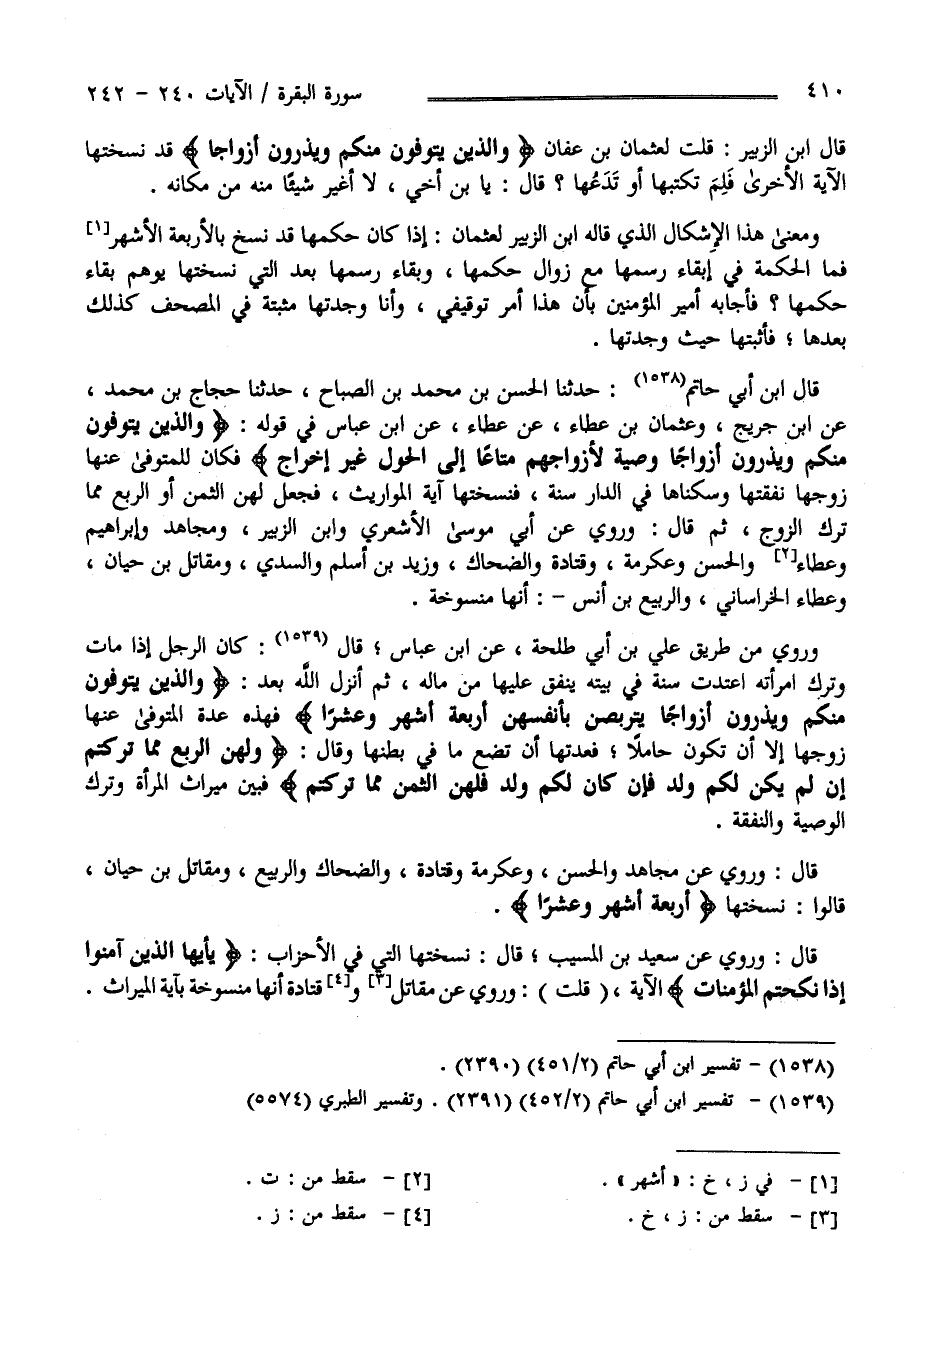 ٤١٠ سورة البقرة / الآيات ٢٤٠ - ٢٤٢
قال ابن الزبير : قلت لعثمان بن عفان ﴿ والذين يتوفون منكم ويذرون أزواجا ﴾ قد نسختها
الآية الأخرىٰ فَلِمَ تكتبها أو تَدَعُها ؟ قال : يا بن أخي ، لا أغير شيئًا منه من مكانه .
ومعنىٰ هذا الإشكال الذي قاله ابن الزبير لعثمان : إذا كان حكمها قد نسخ بالأربعة الأشهر[١]
فما الحكمة في إبقاء رسمها مع زوال حكمها ، وبقاء رسمها بعد التي نسختها يوهم بقاء
حكمها ؟ فأجابه أمير المؤمنين بأن هذا أمر توقيفي ، وأنا وجدتها مثبتة في المصحف كذلك
بعدها ؛ فأثبتها حيث وجدتها .
قال ابن أبي حاتم(١٥٣٨) : حدثنا الحسن بن محمد بن الصباح ، حدثنا حجاج بن محمد ،
عن ابن جريج ، وعثمان بن عطاء ، عن عطاء ، عن ابن عباس في قوله : ﴿ والذين يتوفون
منكم ويذرون أزواجًا وصية لأزواجهم متاعًا إلى الحول غير إخراج ﴾ فكان للمتوفىٰ عنها
زوجها نفقتها وسكناها في الدار سنة ، فنسختها آية المواريث ، فجعل لهن الثمن أو الربع مما
ترك الزوج ، ثم قال : وروي عن أبي موسىٰ الأشعري وابن الزبير ، ومجاهد وإبراهيم
وعطاء[٢] والحسن وعكرمة ، وقتادة والضحاك ، وزيد بن أسلم والسدي ، ومقاتل بن حيان ،
وعطاء الخراساني ، والربيع بن أنس - : أنها منسوخة .
وروي من طريق علي بن أبي طلحة ، عن ابن عباس ؛ قال (١٥٣٩) : كان الرجل إذا مات
وترك امرأته اعتدت سنة في بيته ينفق عليها من ماله ، ثم أنزل اللَّه بعد : ﴿ والذين يتوفون
منكم ويذرون أزواجًا يتربصن بأنفسهن أربعة أشهر وعشرًا ﴾ فهذه عدة المتوفىٰ عنها
زوجها إلا أن تكون حاملًا ؛ فعدتها أن تضع ما في بطنها وقال : ﴿ ولهن الربع مما تركتم
إن لم يكن لكم ولد فإن كان لكم ولد فلهن الثمن مما تركتم ﴾ فبين ميراث المرأة وترك
الوصية والنفقة .
قال : وروي عن مجاهد والحسن ، وعكرمة وقتادة ، والضحاك والربيع ، ومقاتل بن حيان ،
قالوا : نسختها ﴿ أربعة أشهر وعشرًا ﴾ .
قال : وروي عن سعيد بن المسيب ؛ قال : نسختها التي في الأحزاب : ﴿ يأيها الذين آمنوا
إذا نكحتم المؤمنات ﴾ الآية ، ( قلت ) : وروي عن مقاتل[٣] و[٤] قتادة أنها منسوخة بآية الميراث .
(١٥٣٨) - تفسير ابن أبي حاتم (٤٥١/٢) (٢٣٩٠) .
(١٥٣٩) - تفسير ابن أبي حاتم (٤٥٢/٢) (٢٣٩١) . وتفسير الطبري (٥٥٧٤)
[١] - في ز ، خ : « أشهر » . [٢] - سقط من : ت .
[٣] - سقط من : ز ، خ . [٤] - سقط من : ز .